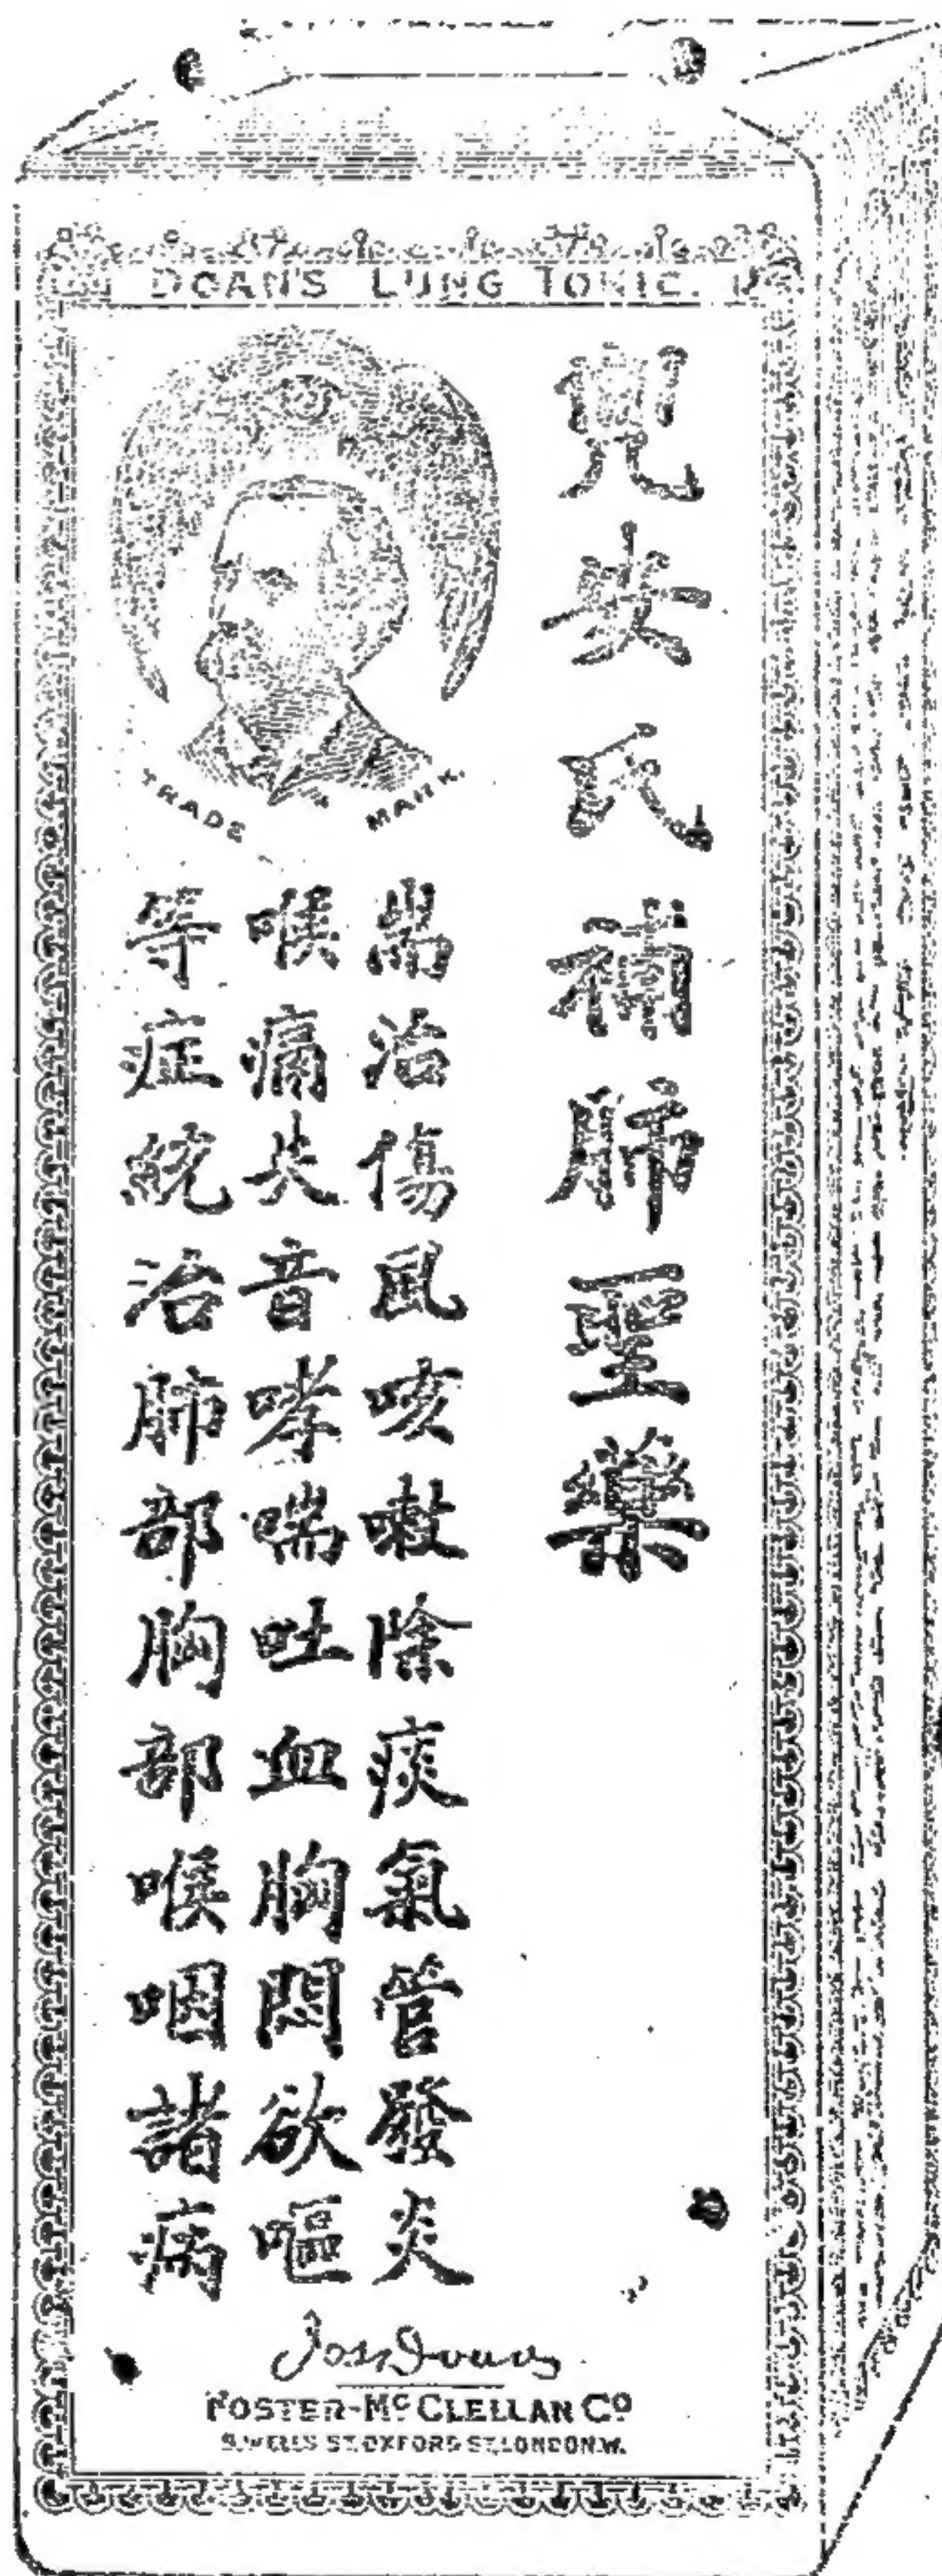 DOAN'S LUNG TONIC.
兜安氏補肺聖藥
TRADE MARK.
耑治傷風咳嗽除痰氣管發炎
喉痛失音哮喘吐血胸悶欲嘔
等症統治肺部胸部喉咽諸病
FOSTER-McCLELLAN Co
8, WELLS ST. OXFORD ST. LONDON. W.